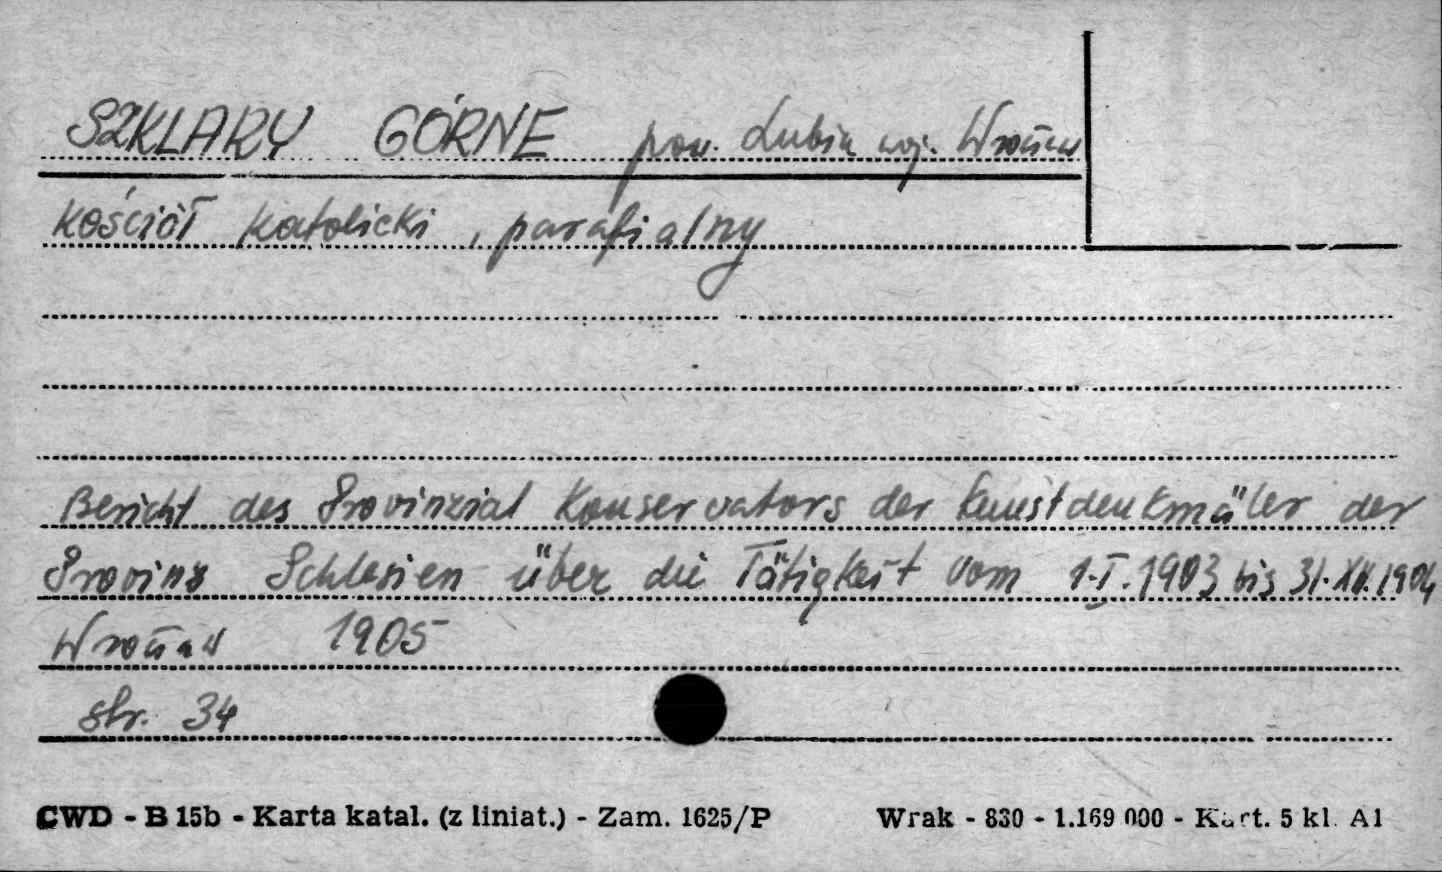 SZKLARY GÓRNE pow. Lubin woj. Wrocław
kościół katolicki, parafialny
Bericht des Provinzial Konservators der Kunstdenkmäler der
Provinz Schlesien über die Tätigkeit vom 1.I.1903 bis 31.XII.1904
Wrocław 1905
str. 34
CWD - B 15b - Karta katal. (z liniat.) - Zam. 1625/P Wrak - 830 - 1.169 000 - Kart. 5 kl. A1